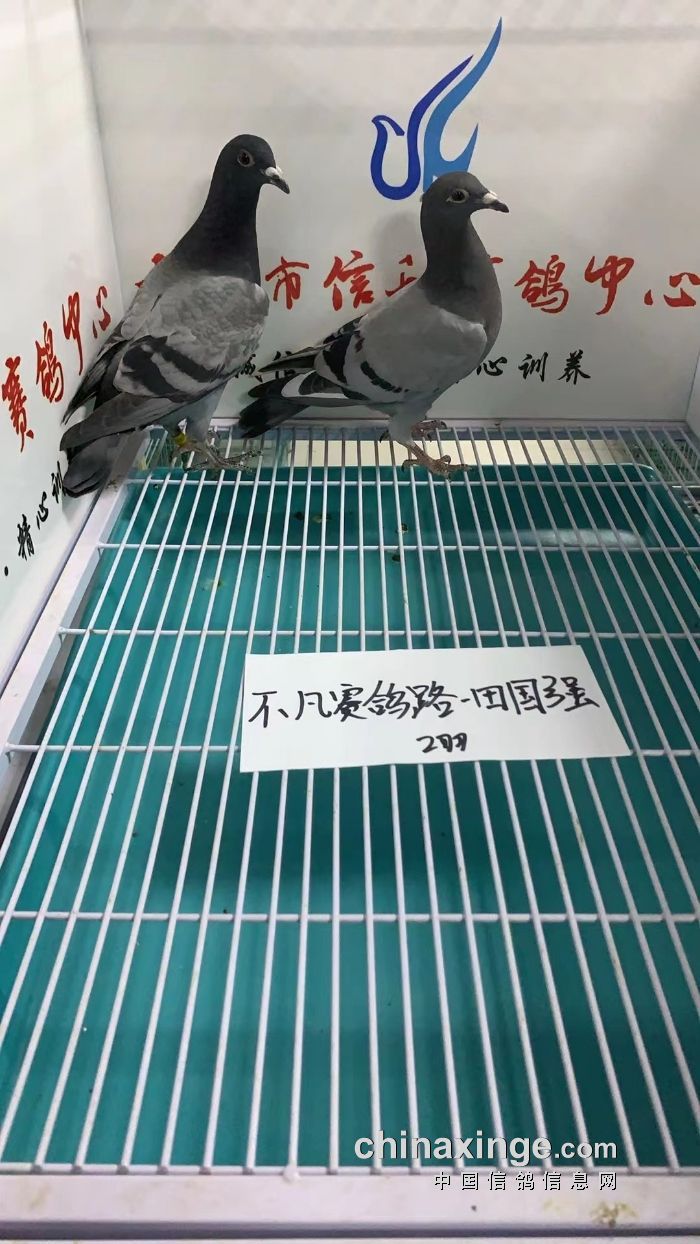 市信
鸽中心
赛鸽中心
心训养
·精心训
不凡赛鸽路-田国强
2羽
chinaxinge.com
中国信鸽信息网